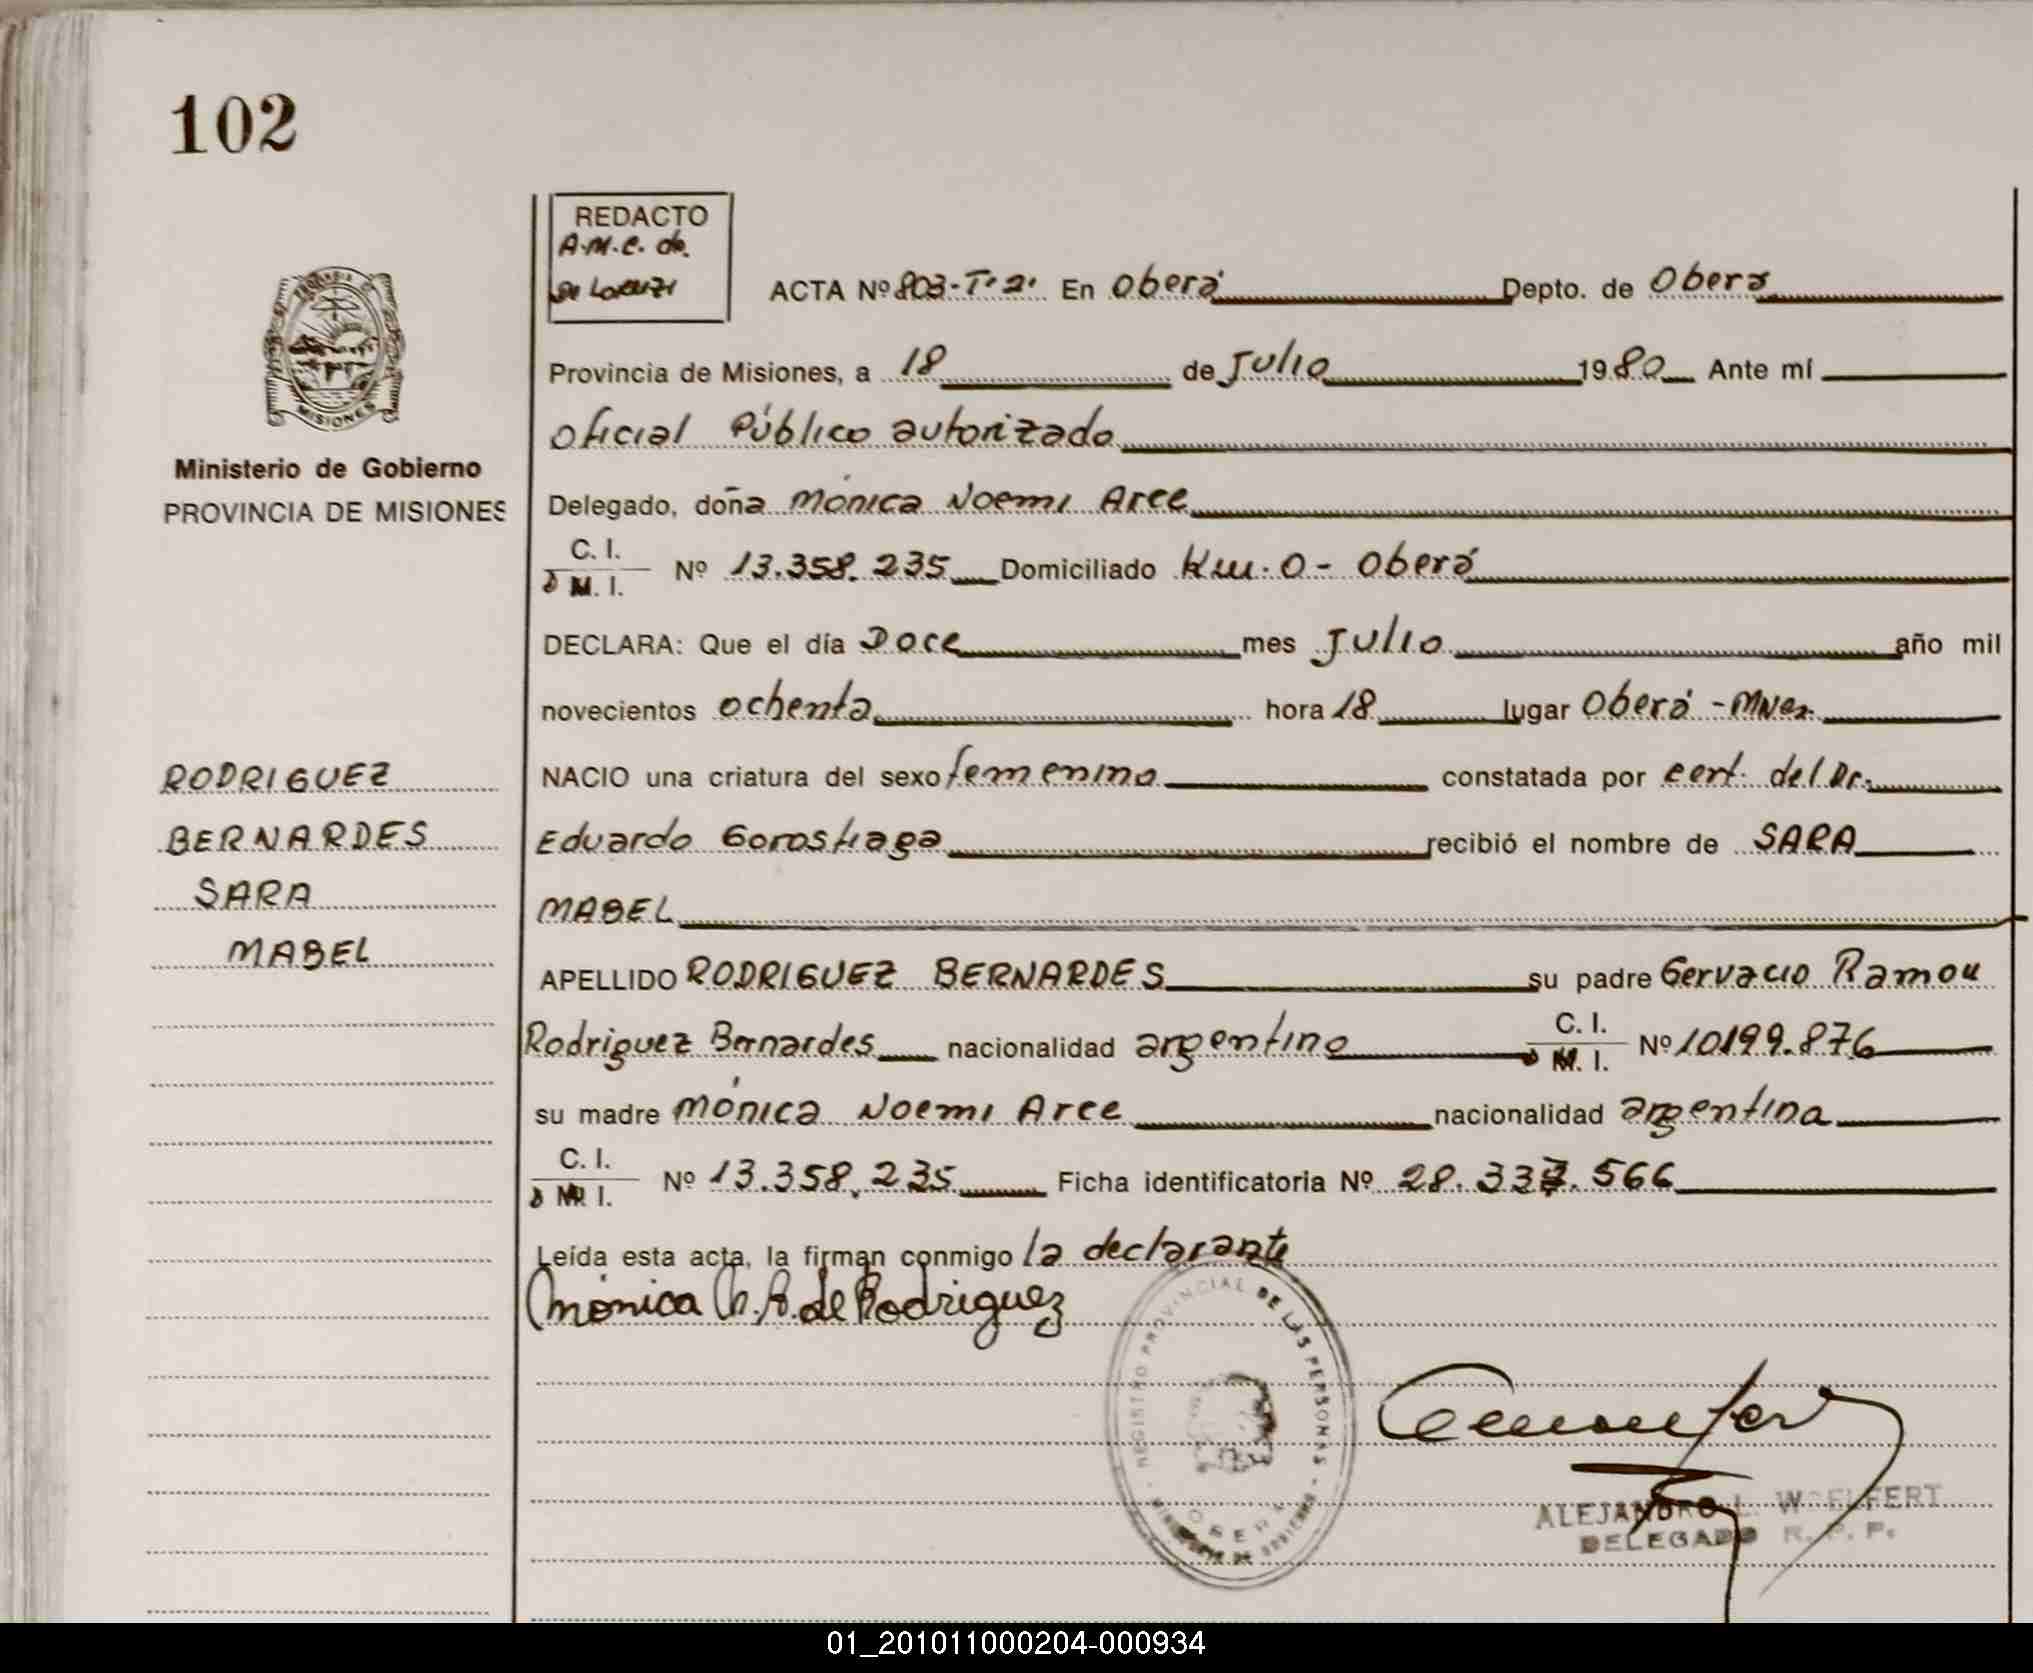 102
REDACTO
A.M.C. de
De Lorenzi
ACTA Nº 803-T.2. En Oberá Depto. de Oberá
Provincia de Misiones, a 18 de Julio 1980 Ante mí
Oficial Público autorizado
Delegado, doña Mónica Noemi Arce
C. I.
ó M. I. Nº 13.358.235 Domiciliado Km.0 - Oberá
DECLARA: Que el día Doce mes Julio año mil
novecientos ochenta hora 18 lugar Oberá - Mnes.
NACIO una criatura del sexo femenino constatada por cert. del Dr.
Eduardo Gorostiaga recibió el nombre de SARA
MABEL
APELLIDO RODRIGUEZ BERNARDES su padre Gervacio Ramon
Rodriguez Bernardes nacionalidad argentino C. I. ó M. I. Nº 10199.876
su madre Mónica Noemi Arce nacionalidad argentina
C. I.
ó M. I. Nº 13.358.235 Ficha identificatoria Nº 28.337.566
Leída esta acta, la firman conmigo la declarante
Mónica N. A. de Rodriguez
MISIONES
Ministerio de Gobierno
PROVINCIA DE MISIONES
RODRIGUEZ
BERNARDES
SARA
MABEL
REGISTRO PROVINCIAL DE LAS PERSONAS - MINISTERIO DE GOBIERNO -
OBERA
ALEJANDRO L. WOELFERT
DELEGADO R. P. P.
01_201011000204-000934